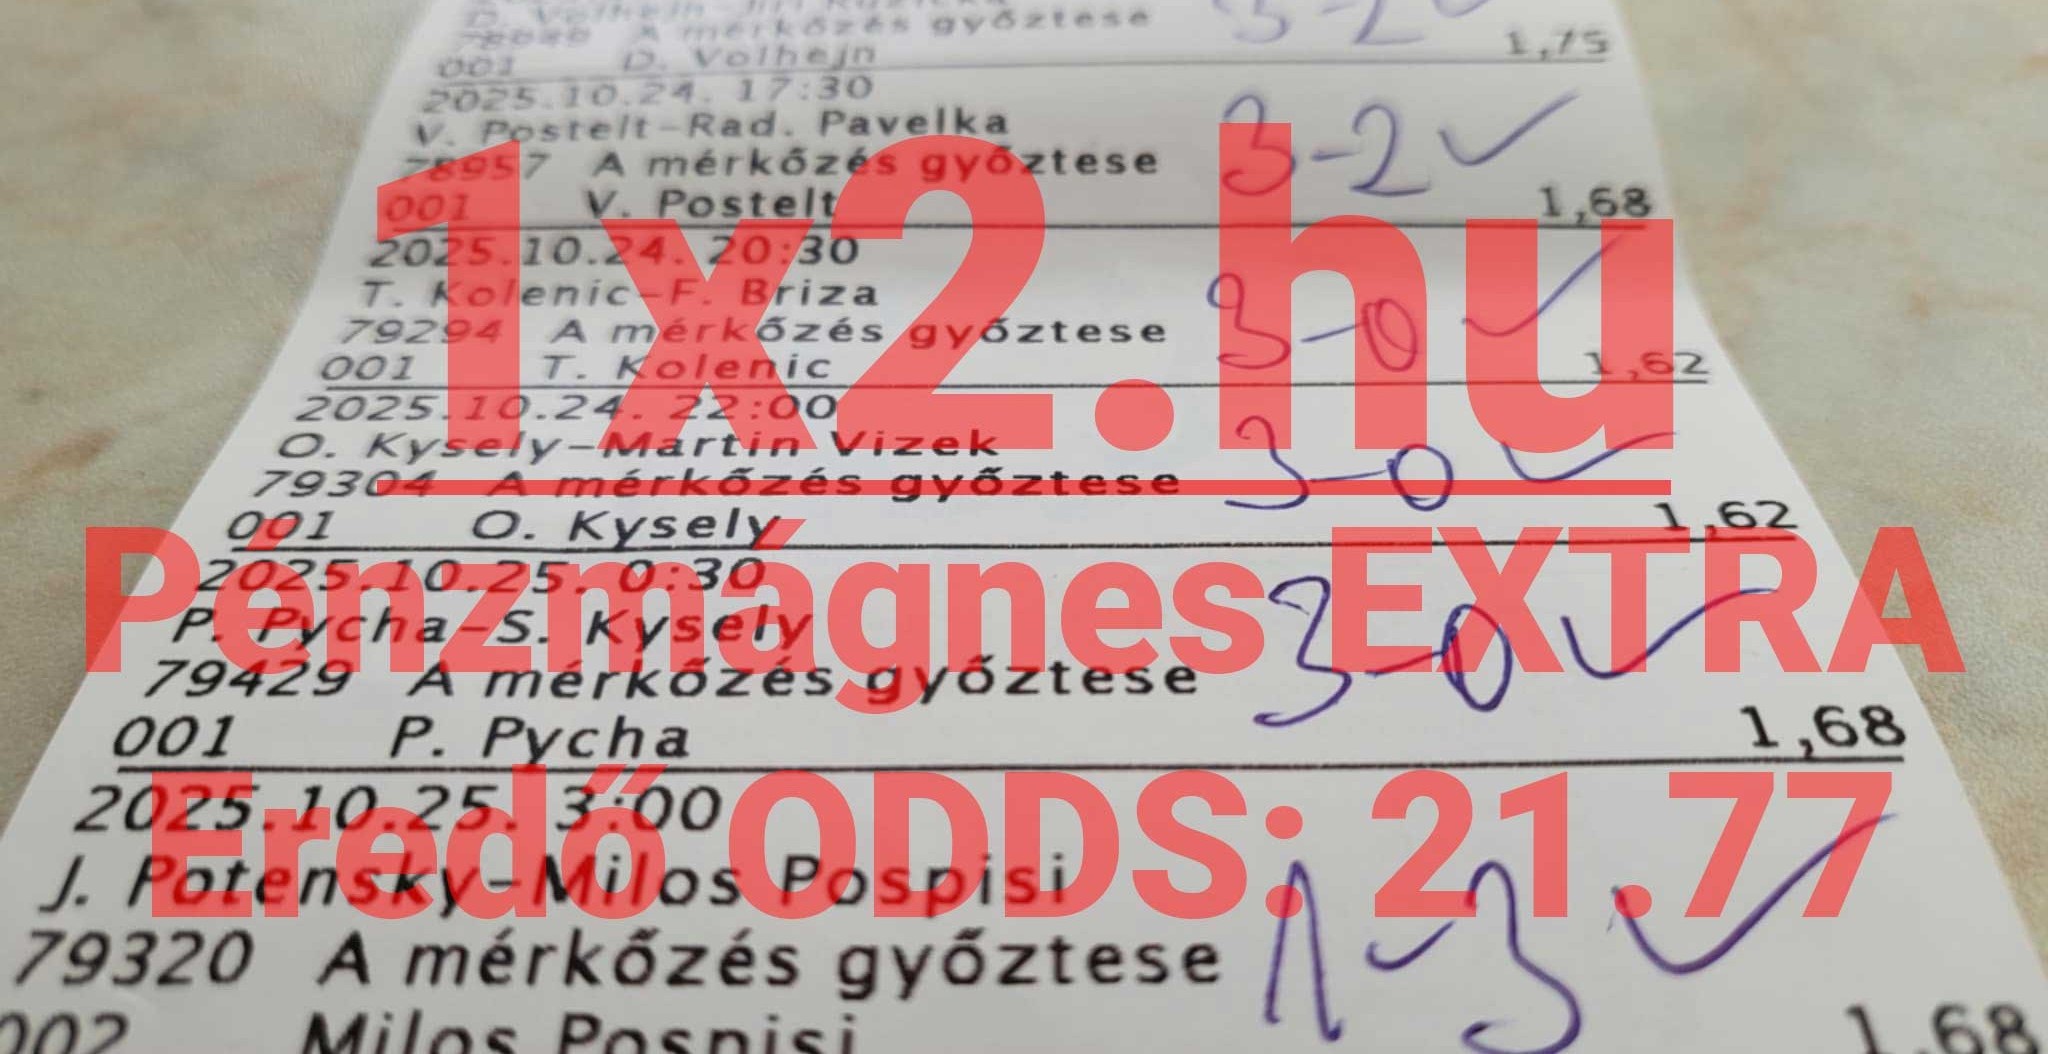 D. Volhejn-Jiri Ruzicka
78949 A mérkőzés győztese 3-2
001 D. Volhejn 1,75
2025.10.24. 17:30
V. Postelt-Rad. Pavelka
78957 A mérkőzés győztese 3-2 ✓
001 V. Postelt 1,68
2025.10.24. 20:30
T. Kolenic-F. Briza
79294 A mérkőzés győztese 3-0 ✓
001 T. Kolenic 1,62
2025.10.24. 22:00
O. Kysely-Martin Vizek
79304 A mérkőzés győztese 3-0 ✓
001 O. Kysely 1,62
2025.10.25. 0:30
P. Pycha-S. Kysely
79429 A mérkőzés győztese 3-0 ✓
001 P. Pycha 1,68
2025.10.25. 3:00
J. Potensky-Milos Pospisi
79320 A mérkőzés győztese 1-3 ✓
002 Milos Pospisi 1,68
1x2.hu
Pénzmágnes EXTRA
Eredő ODDS: 21.77